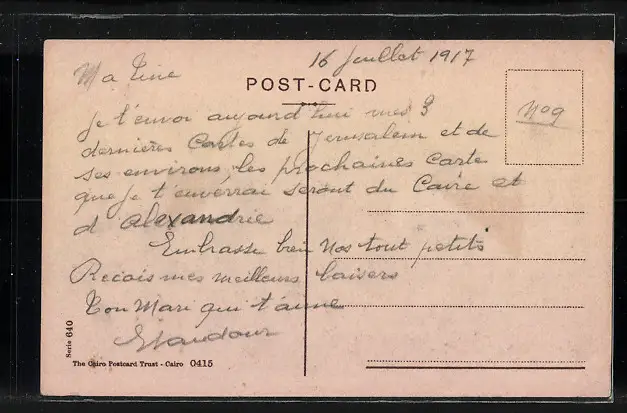 16 Juillet 1917
Ma Tine
POST-CARD
No 9
Je t'envoi aujourd'hui mes 3
dernières Cartes de Jerusalem et de
ses environs, les prochaines Carte
que Je t'enverrai seront du Caire et
d'Alexandrie
Embrasse bien Nos tout petits
Recois mes meilleurs baisers
Ton Mari qui t'aime
Serie 640
The Cairo Postcard Trust - Cairo 0415